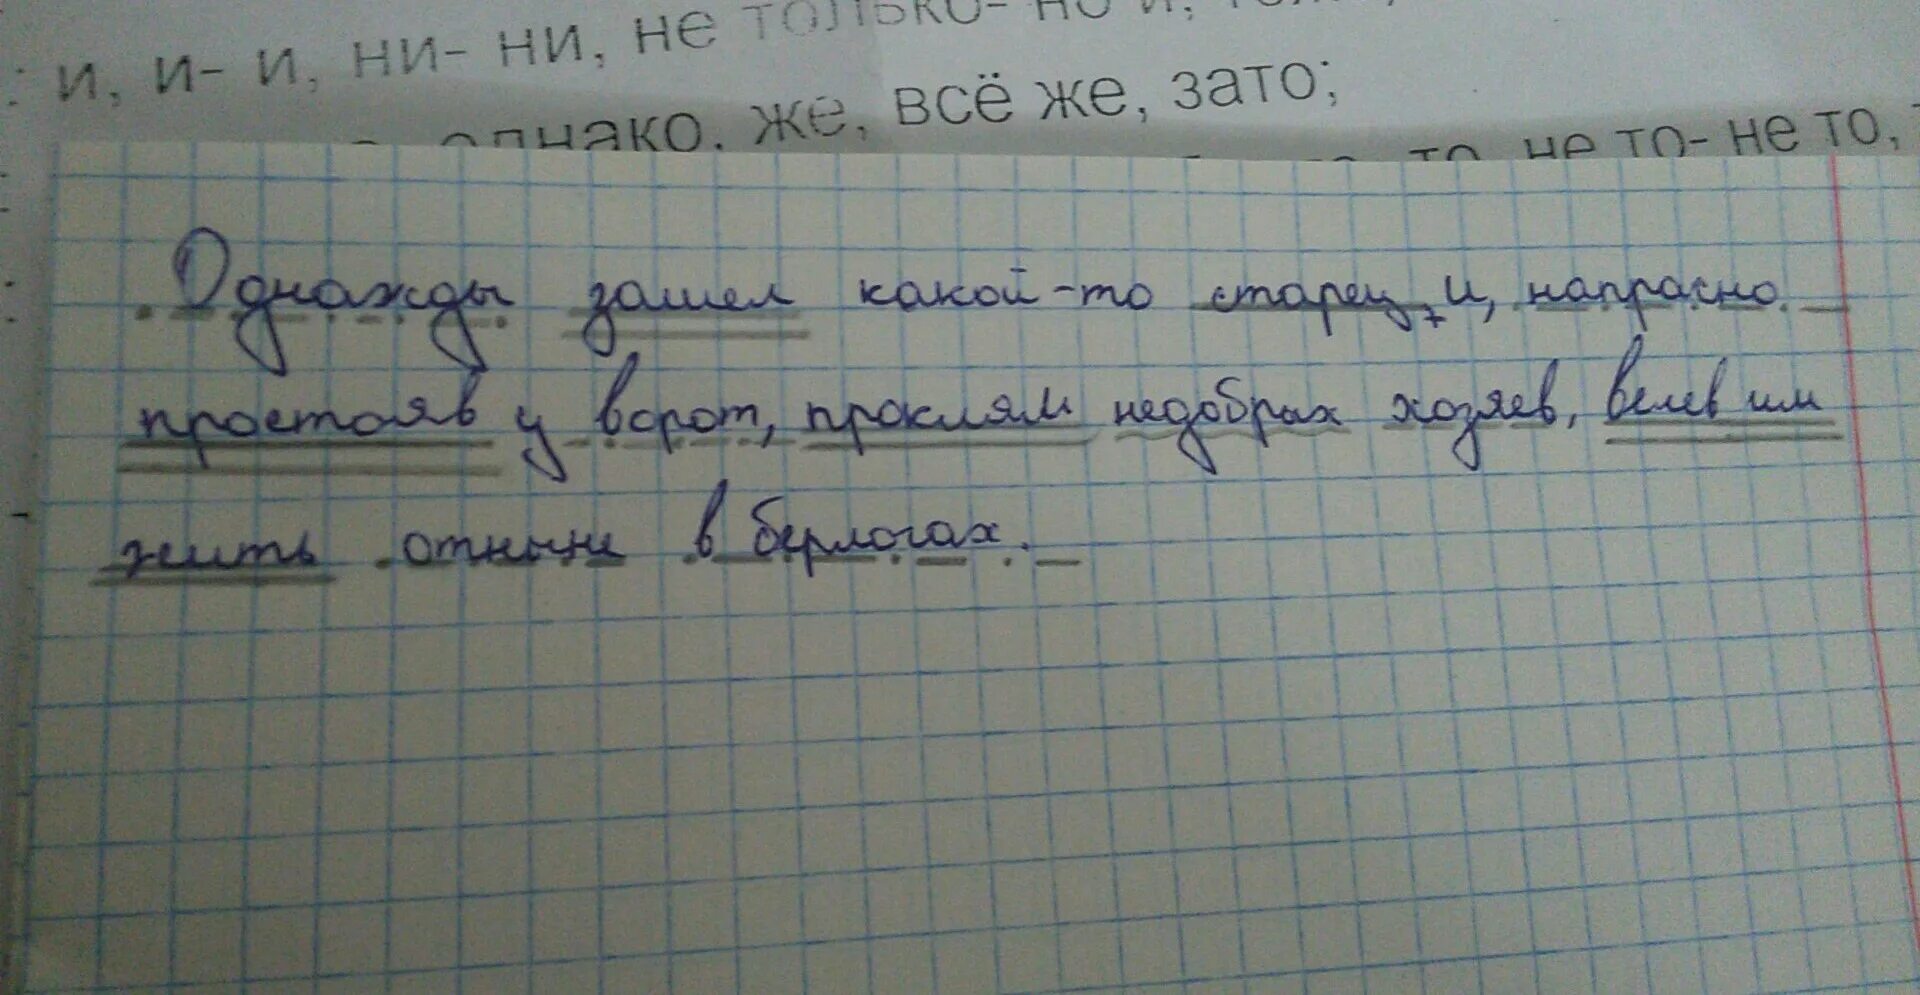 : и, и- и, ни- ни, не только- но и,
однако, же, всё же, зато;
то, не то- не то,
Однажды зашел какой-то старец, и, напрасно
простояв у ворот, проклял недобрых хозяев, велев им
жить отныне в берлогах.